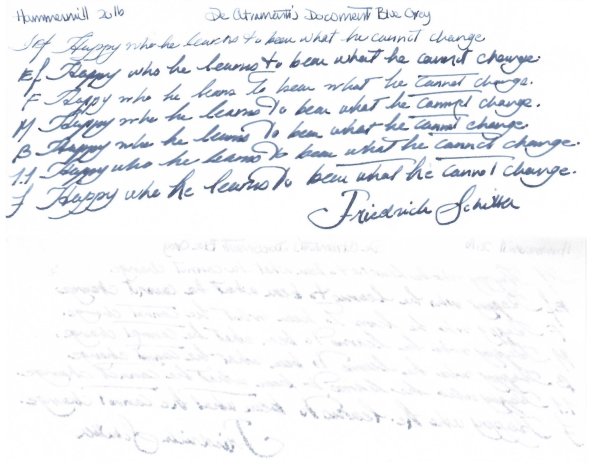 Hammermill 20lb De Atramentis Document Blue Grey
Happy who he learns to bear what he cannot change
Ef Happy who he learns to bear what he cannot change.
F Happy who he learns to bear what he cannot change.
M Happy who he learns to bear what he cannot change.
B Happy who he learns to bear what he cannot change.
1.1 Happy who he learns to bear what he cannot change.
Happy who he learns to bear what he cannot change.
Friedrich Schiller